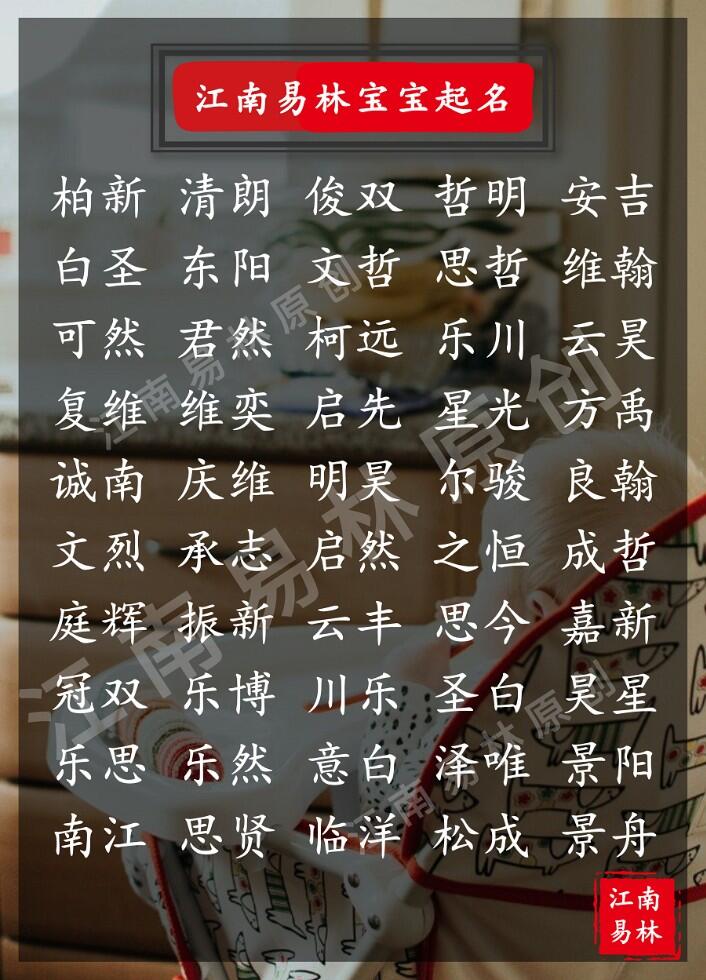 江南易林宝宝起名
柏新 清朗 俊双 哲明 安吉
白圣 东阳 文哲 思哲 维翰
可然 君然 柯远 乐川 云昊
复维 维奕 启先 星光 方禹
诚南 庆维 明昊 尔骏 良翰
文烈 承志 启然 之恒 成哲
庭辉 振新 云丰 思今 嘉新
冠双 乐博 川乐 圣白 昊星
乐思 乐然 意白 泽唯 景阳
南江 思贤 临洋 松成 景舟
江南
易林
江南易林原创
江南易林原创
江南易林原创